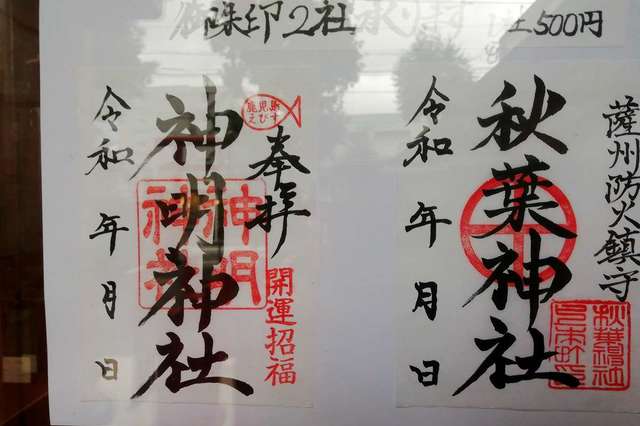 御朱印2社
500円
薩州防火鎮守
秋葉神社
令和 年 月 日
鹿児島
えびす
奉拝
開運招福
神明神社
令和 年 月 日